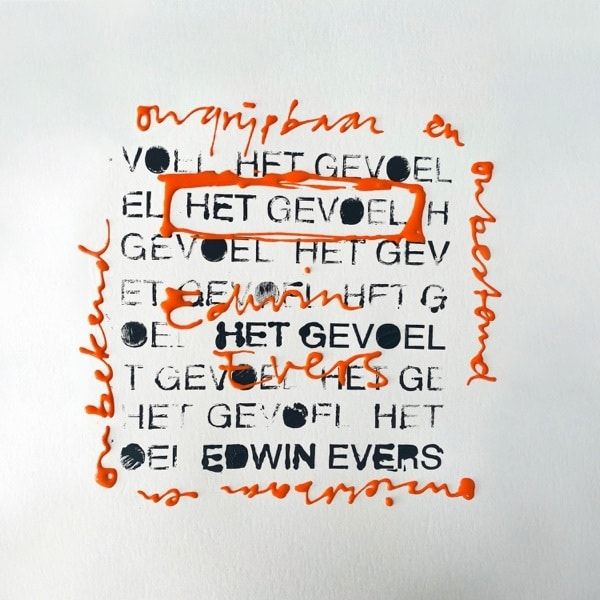 ongrijpbaar en
onbestand
VOEL HET GEVOEL
EL HET GEVOEL H
GEVOEL HET GEV
ET GEVOEL HET G
Edwin
OEL HET GEVOEL
Evers
T GEVOEL HET GE
HET GEVOEL HET
OEL EDWIN EVERS
onzichtbaar en
onbekend